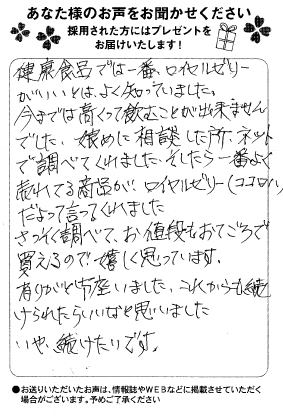 あなた様のお声をお聞かせください
採用された方にはプレゼントを
お届けいたします！
健康食品では一番、ロイヤルゼリー
がいいとは、よく知っていました。
今までは高くって飲むことが出来ません
でした。娘めに相談した所、ネット
で調べてくれました。そしたら一番よく
売れてる商品が、ロイヤルゼリー（ココロイソ）
だよって言ってくれました
さっそく調べて、お値段もおてごろで
買えるので嬉しく思っています。
有りがとう御座いました。これからも続
けられたらいいなと思いました
いや、続けたいです。
●お送りいただいたお声は、情報誌やWEBなどに掲載させていただく
場合がございます。予めご了承ください